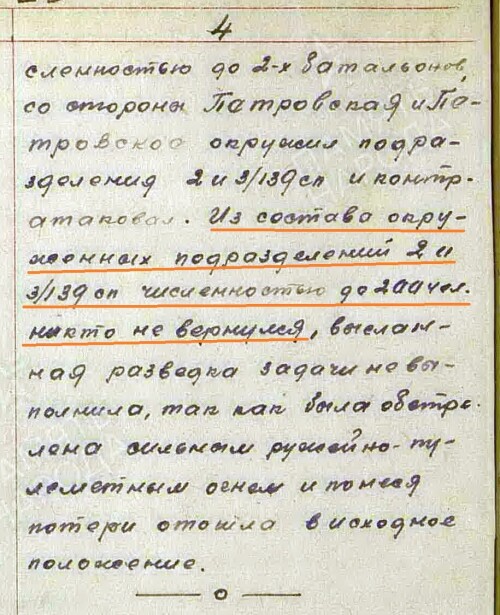 4
сленностью до 2-х батальонов,
со стороны Патровская и Па-
тровское окружил подра-
зделения 2 и 3/139 сп и контр-
атаковал. Из состава окру-
женных подразделений 2 и
3/139 сп численностью до 200 чел.
никто не вернулся, выслан-
ная разведка задачи не вы-
полнила, так как была обстре-
лена сильным ружейно-пу-
леметным огнем и понеся
потери отошла в исходное
положение.